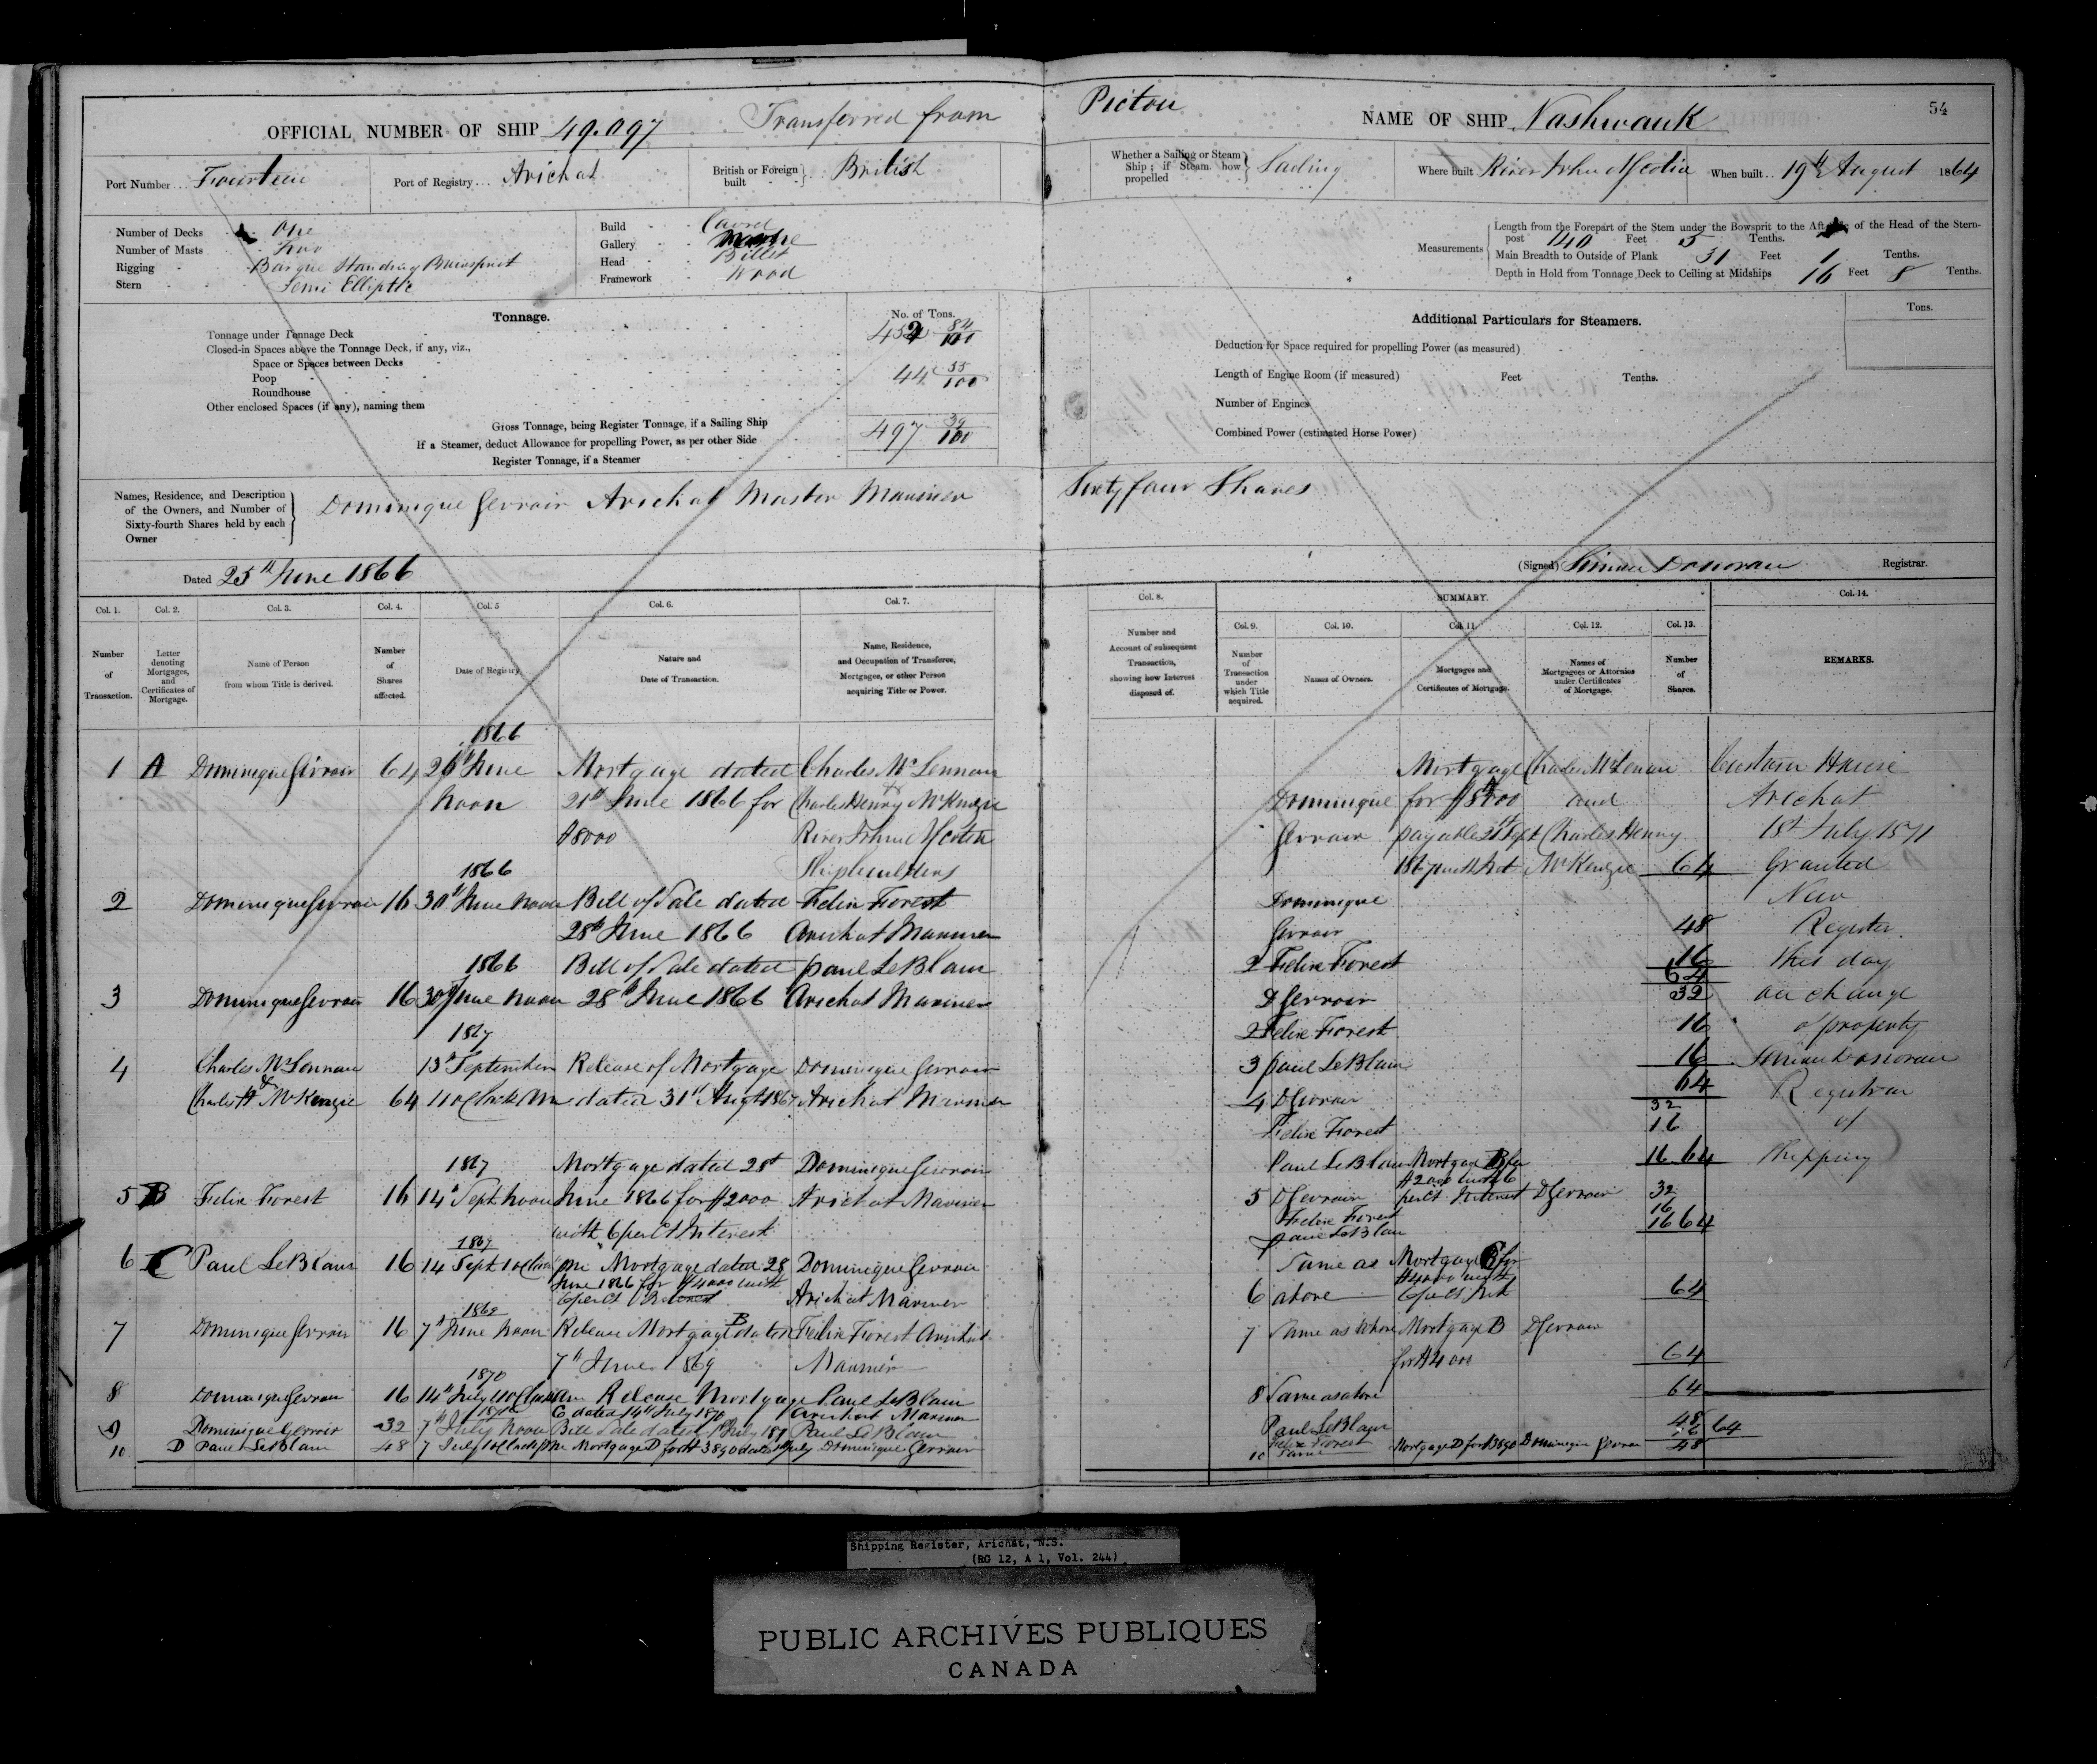 OFFICIAL NUMBER OF SHIP 49.097 Transferred from
Port Number Fourteen Port of Registry Arichat British or Foreign built British
Number of Decks One
Number of Masts Two
Rigging Barque Standing Bowsprit
Stern Semi Elliptic
Build Carvel
Gallery
Head Billet
Framework Wood
Tonnage. No. of Tons.
Tonnage under Tonnage Deck 452 84/100
Closed-in Spaces above the Tonnage Deck, if any, viz.,
Space or Spaces between Decks
Poop 44 55/100
Roundhouse
Other enclosed Spaces (if any), naming them
Gross Tonnage, being Register Tonnage, if a Sailing Ship 497 39/100
If a Steamer, deduct Allowance for propelling Power, as per other Side
Register Tonnage, if a Steamer
Names, Residence, and Description of the Owners, and Number of Sixty-fourth Shares held by each Owner
Dominique Gerroir Arichat Master Mariner
Dated 25th June 1866
Col. 1. Col. 2. Col. 3. Col. 4. Col. 5 Col. 6. Col. 7.
Number of Transaction.
Letter denoting Mortgages, and Certificates of Mortgage.
Name of Person from whom Title is derived.
Number of Shares affected.
Date of Registry.
Nature and Date of Transaction.
Name, Residence, and Occupation of Transferee, Mortgagee, or other Person acquiring Title or Power.
1866
1 A Dominique Gerroir 64 26th June Mortgage dated Charles McLennan
noon 21st June 1866 for Charles Henry McKenzie
$8000 River John N Scotia
1866 Shipbuilders
2 Dominique Gerroir 16 30th June noon Bill of Sale dated Felix Forest
28th June 1866 Arichat Mariner
1866 Bill of Sale dated Paul LeBlanc
3 Dominique Gerroir 16 30th June noon 28th June 1866 Arichat Mariner
1867
4 Charles McLennan 13th September Release of Mortgage Dominique Gerroir
& Charles H McKenzie 64 11 o Clock AM dated 31st Augt 1867 Arichat Mariner
1867 Mortgage dated 28th Dominique Gerroir
5 B Felix Forest 16 14th Sept noon June 1866 for $2000 Arichat Mariner
with 6 per Ct Interest
1867
6 C Paul LeBlanc 16 14 Sept 1 o Clock pm Mortgage dated 28 Dominique Gerroir
June 1866 for $4000 with
6 per Ct Interest Arichat Mariner
1869
7 Dominique Gerroir 16 7th June noon Release Mortgage B dated Felix Forest Arichat
7th June 1869 Mariner
1870
8 Dominique Gerroir 16 14th July 11 o Clock am Release Mortgage Paul LeBlanc
C dated 14th July 1870 Arichat Mariner
9 Dominique Gerroir 32 7th July noon Bill Sale dated July Paul LeBlanc
10 D Paul LeBlanc 48 7 July 1 o Clock pm Mortgage D for $3890 dated July Dominique Gerroir
Pictou NAME OF SHIP Nashwauk 54
Whether a Sailing or Steam Ship; if Steam how propelled Sailing Where built River John N Scotia When built 19th August 1864
Measurements
Length from the Forepart of the Stem under the Bowsprit to the Aft of the Head of the Stern-
post 140 Feet 5 Tenths.
Main Breadth to Outside of Plank 31 Feet 1 Tenths.
Depth in Hold from Tonnage Deck to Ceiling at Midships 16 Feet 8 Tenths.
Additional Particulars for Steamers. Tons.
Deduction for Space required for propelling Power (as measured)
Length of Engine Room (if measured) Feet Tenths.
Number of Engines
Combined Power (estimated Horse Power)
Sixty four Shares
(Signed) Simon Donovan Registrar.
Col. 8. SUMMARY. Col. 14.
Col. 9. Col. 10. Col. 11. Col. 12. Col. 13.
Number and Account of subsequent Transaction, showing how Interest disposed of.
Number of Transaction under which Title acquired.
Names of Owners.
Mortgages and Certificates of Mortgage.
Names of Mortgagees or Attornies under Certificates of Mortgage.
Number of Shares.
REMARKS.
Mortgage Charles McLennan Custom House
Dominique for $8000 and Arichat
Gerroir payable 21st Sept Charles Henny 1st July 1871
1867 with Int McKenzie 64 Granted
Dominique New
Gerroir 48 Register
2 Felix Forest 16 this day
64
D Gerroir 32 on change
2 Felix Forest 16 of property
3 Paul LeBlanc 16 Simon Donovan
64 Registrar
4 D Gerroir 32
Felix Forest 16 of
Paul LeBlanc Mortgage B for 16 64 Shipping
$2000 with 6
5 D Gerroir per Ct Interest D Gerroir 32
Felix Forest 16
Paul LeBlanc 16 64
Same as Mortgage C for
$4000 with
6 above 6 per Ct Int 64
7 Same as above Mortgage B D Gerroir
for $4000 64
8 Same as above 64
Paul LeBlanc 48
Felix Forest 16 64
10 Same Mortgage D for $3890 Dominique Gerroir 48
Shipping Register, Arichat, N.S.
(RG 12, A 1, Vol. 244)
PUBLIC ARCHIVES PUBLIQUES
CANADA